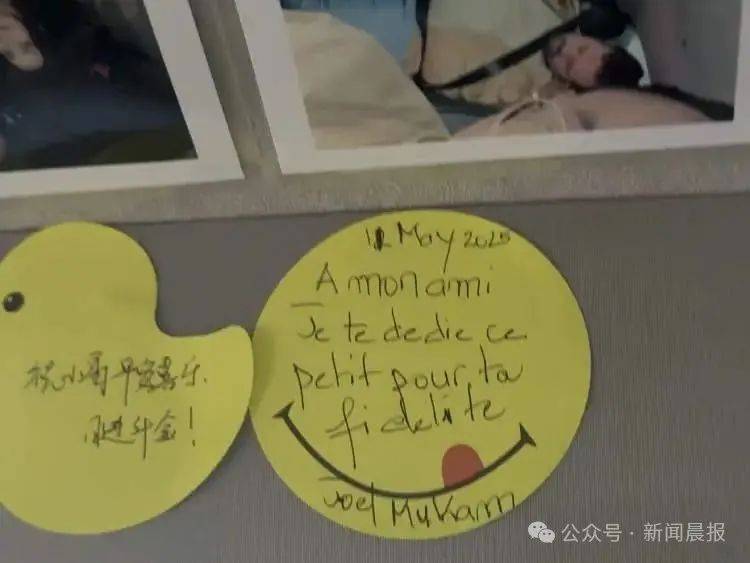 祝小哥平安喜乐
日进斗金!
May 2025
A mon ami
Je te dedie ce
petit pour ta
fidelite
Joel Mukam
公众号·新闻晨报